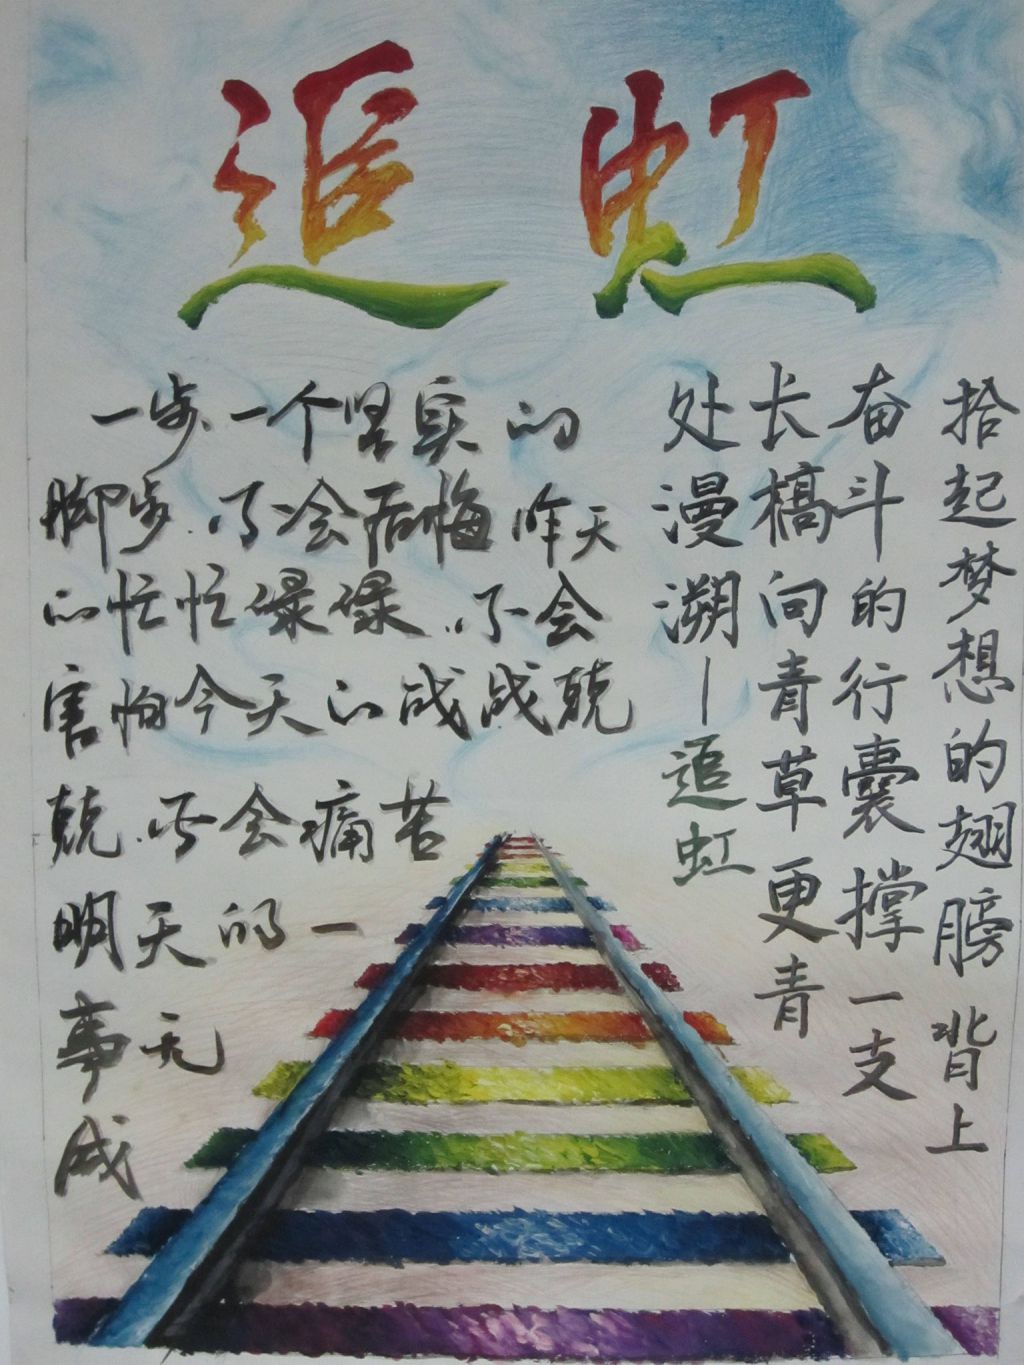 追虹
拾起梦想的翅膀背上
奋斗的行囊撑一支
长槁向青草更青
处漫溯—追虹
一步一个坚实的
脚步.不会后悔昨天
的忙忙碌碌.不会
害怕今天的战战兢
兢.不会痛苦
明天的一
事无
成